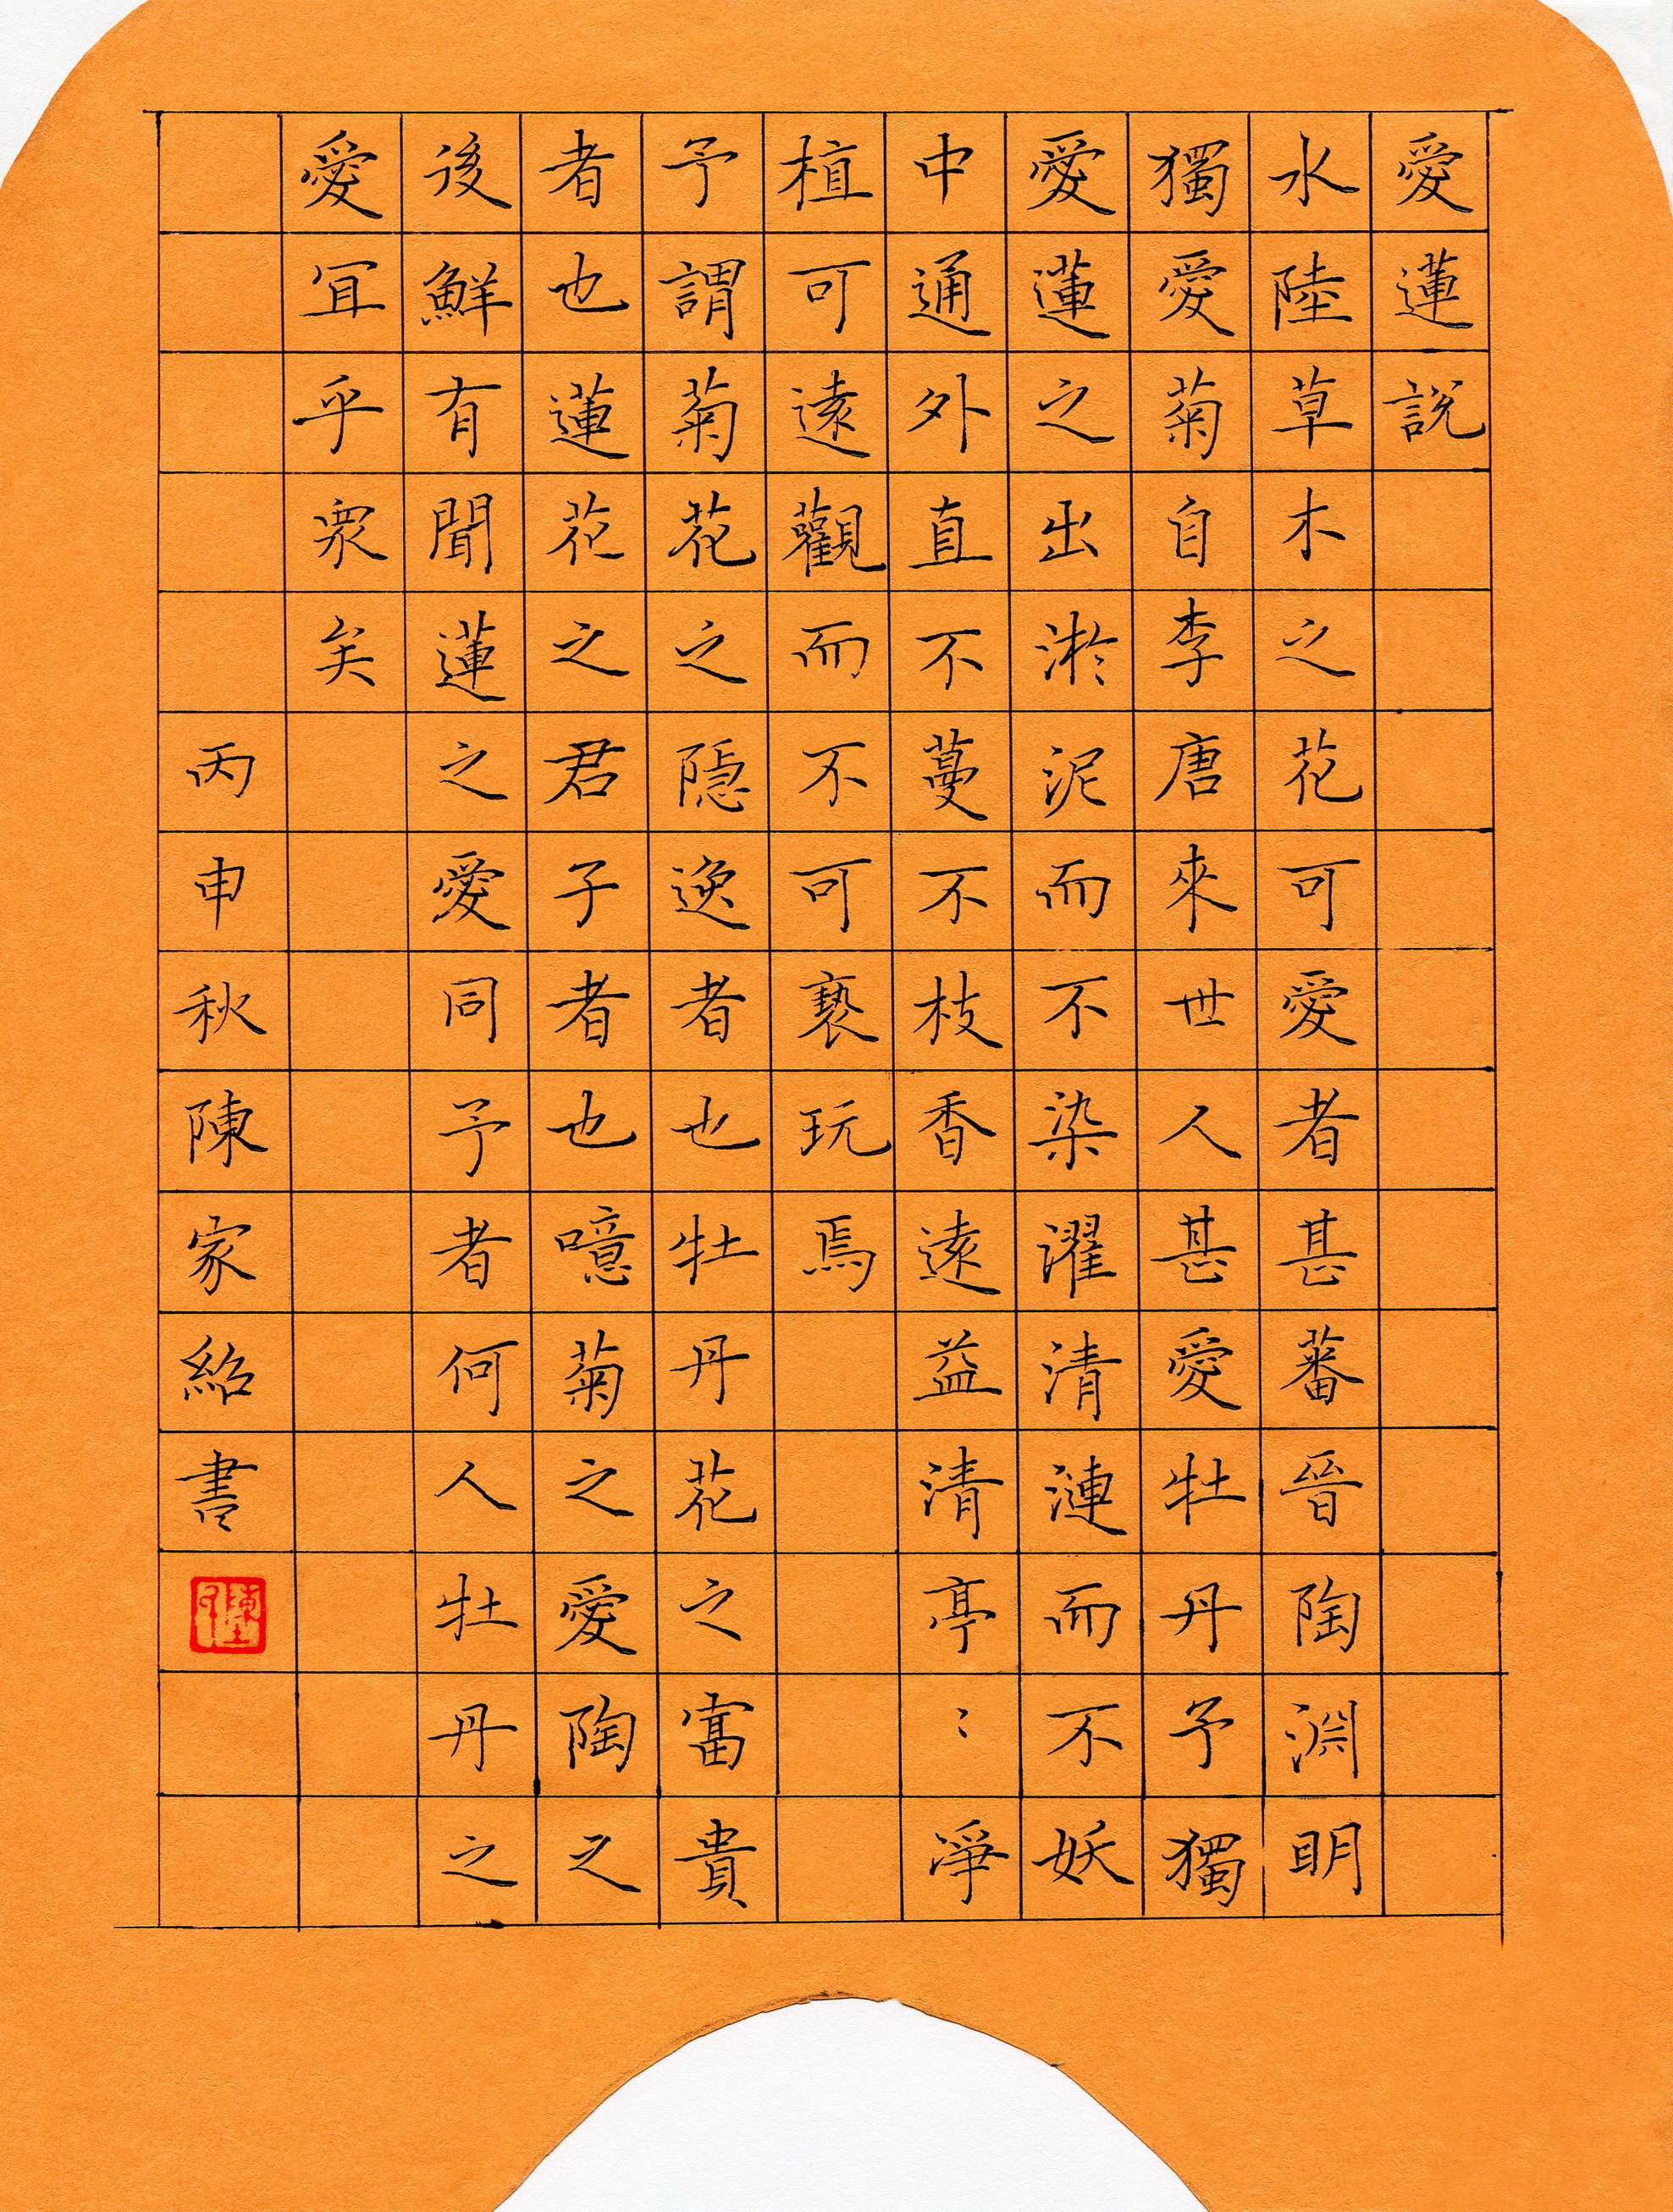 愛蓮說
水陸草木之花可愛者甚蕃晉陶淵明
獨愛菊自李唐來世人甚愛牡丹予獨
愛蓮之出淤泥而不染濯清漣而不妖
中通外直不蔓不枝香遠益清亭〻淨
植可遠觀而不可褻玩焉
予謂菊花之隱逸者也牡丹花之富貴
者也蓮花之君子者也噫菊之愛陶之
後鮮有聞蓮之愛同予者何人牡丹之
愛宜乎眾矣
丙申秋陳家紹書